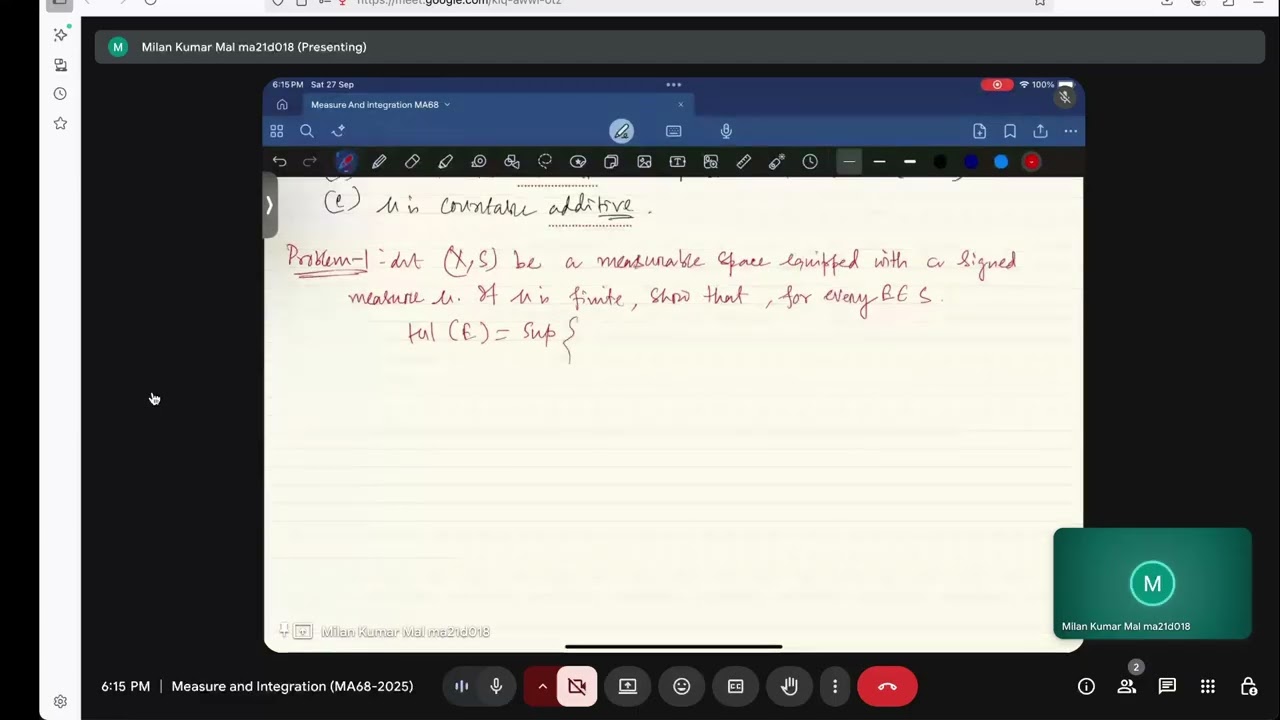 https://meet.google.com/kiq-awwi-otz
M Milan Kumar Mal ma21d018 (Presenting)
6:15 PM Sat 27 Sep
100%
Measure And integration MA68
(e) μ is countable additive.
Problem-1 :- Let (X, S) be a measurable space equipped with a signed
measure μ. If μ is finite, show that, for every E ∈ S.
|μ| (E) = Sup {
Milan Kumar Mal ma21d018
M
Milan Kumar Mal ma21d018
6:15 PM | Measure and Integration (MA68-2025)
2